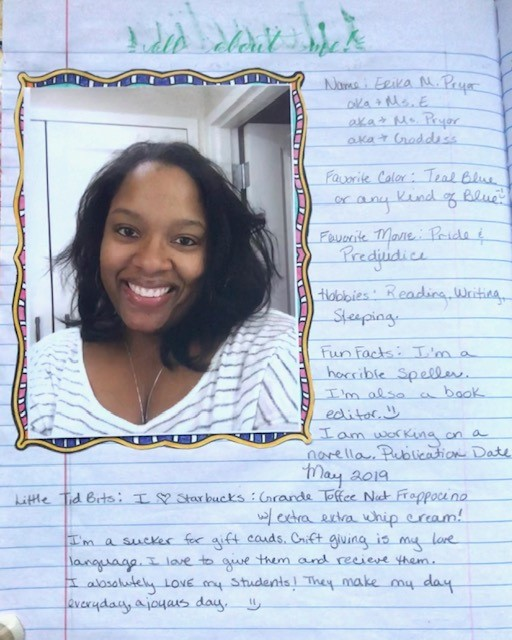 all about me!
Name: Erika M. Pryor
aka → Ms. E
aka → Ms. Pryor
aka → Goddess
Favorite Color: Teal Blue
or any Kind of Blue
Favorite Movie: Pride &
Predjudice
Hobbies: Reading, Writing,
Sleeping.
Fun Facts: I'm a
horrible speller.
I'm also a book
editor.
I am working on a
novella. Publication Date
May 2019
Little Tid Bits: I ♡ Starbucks: Grande Toffee Nut Frappocino
w/ extra extra whip cream!
I'm a sucker for gift cards. Gift giving is my love
language. I love to give them and recieve them.
I absolutely LOVE my students! They make my day
everyday, a joyous day.